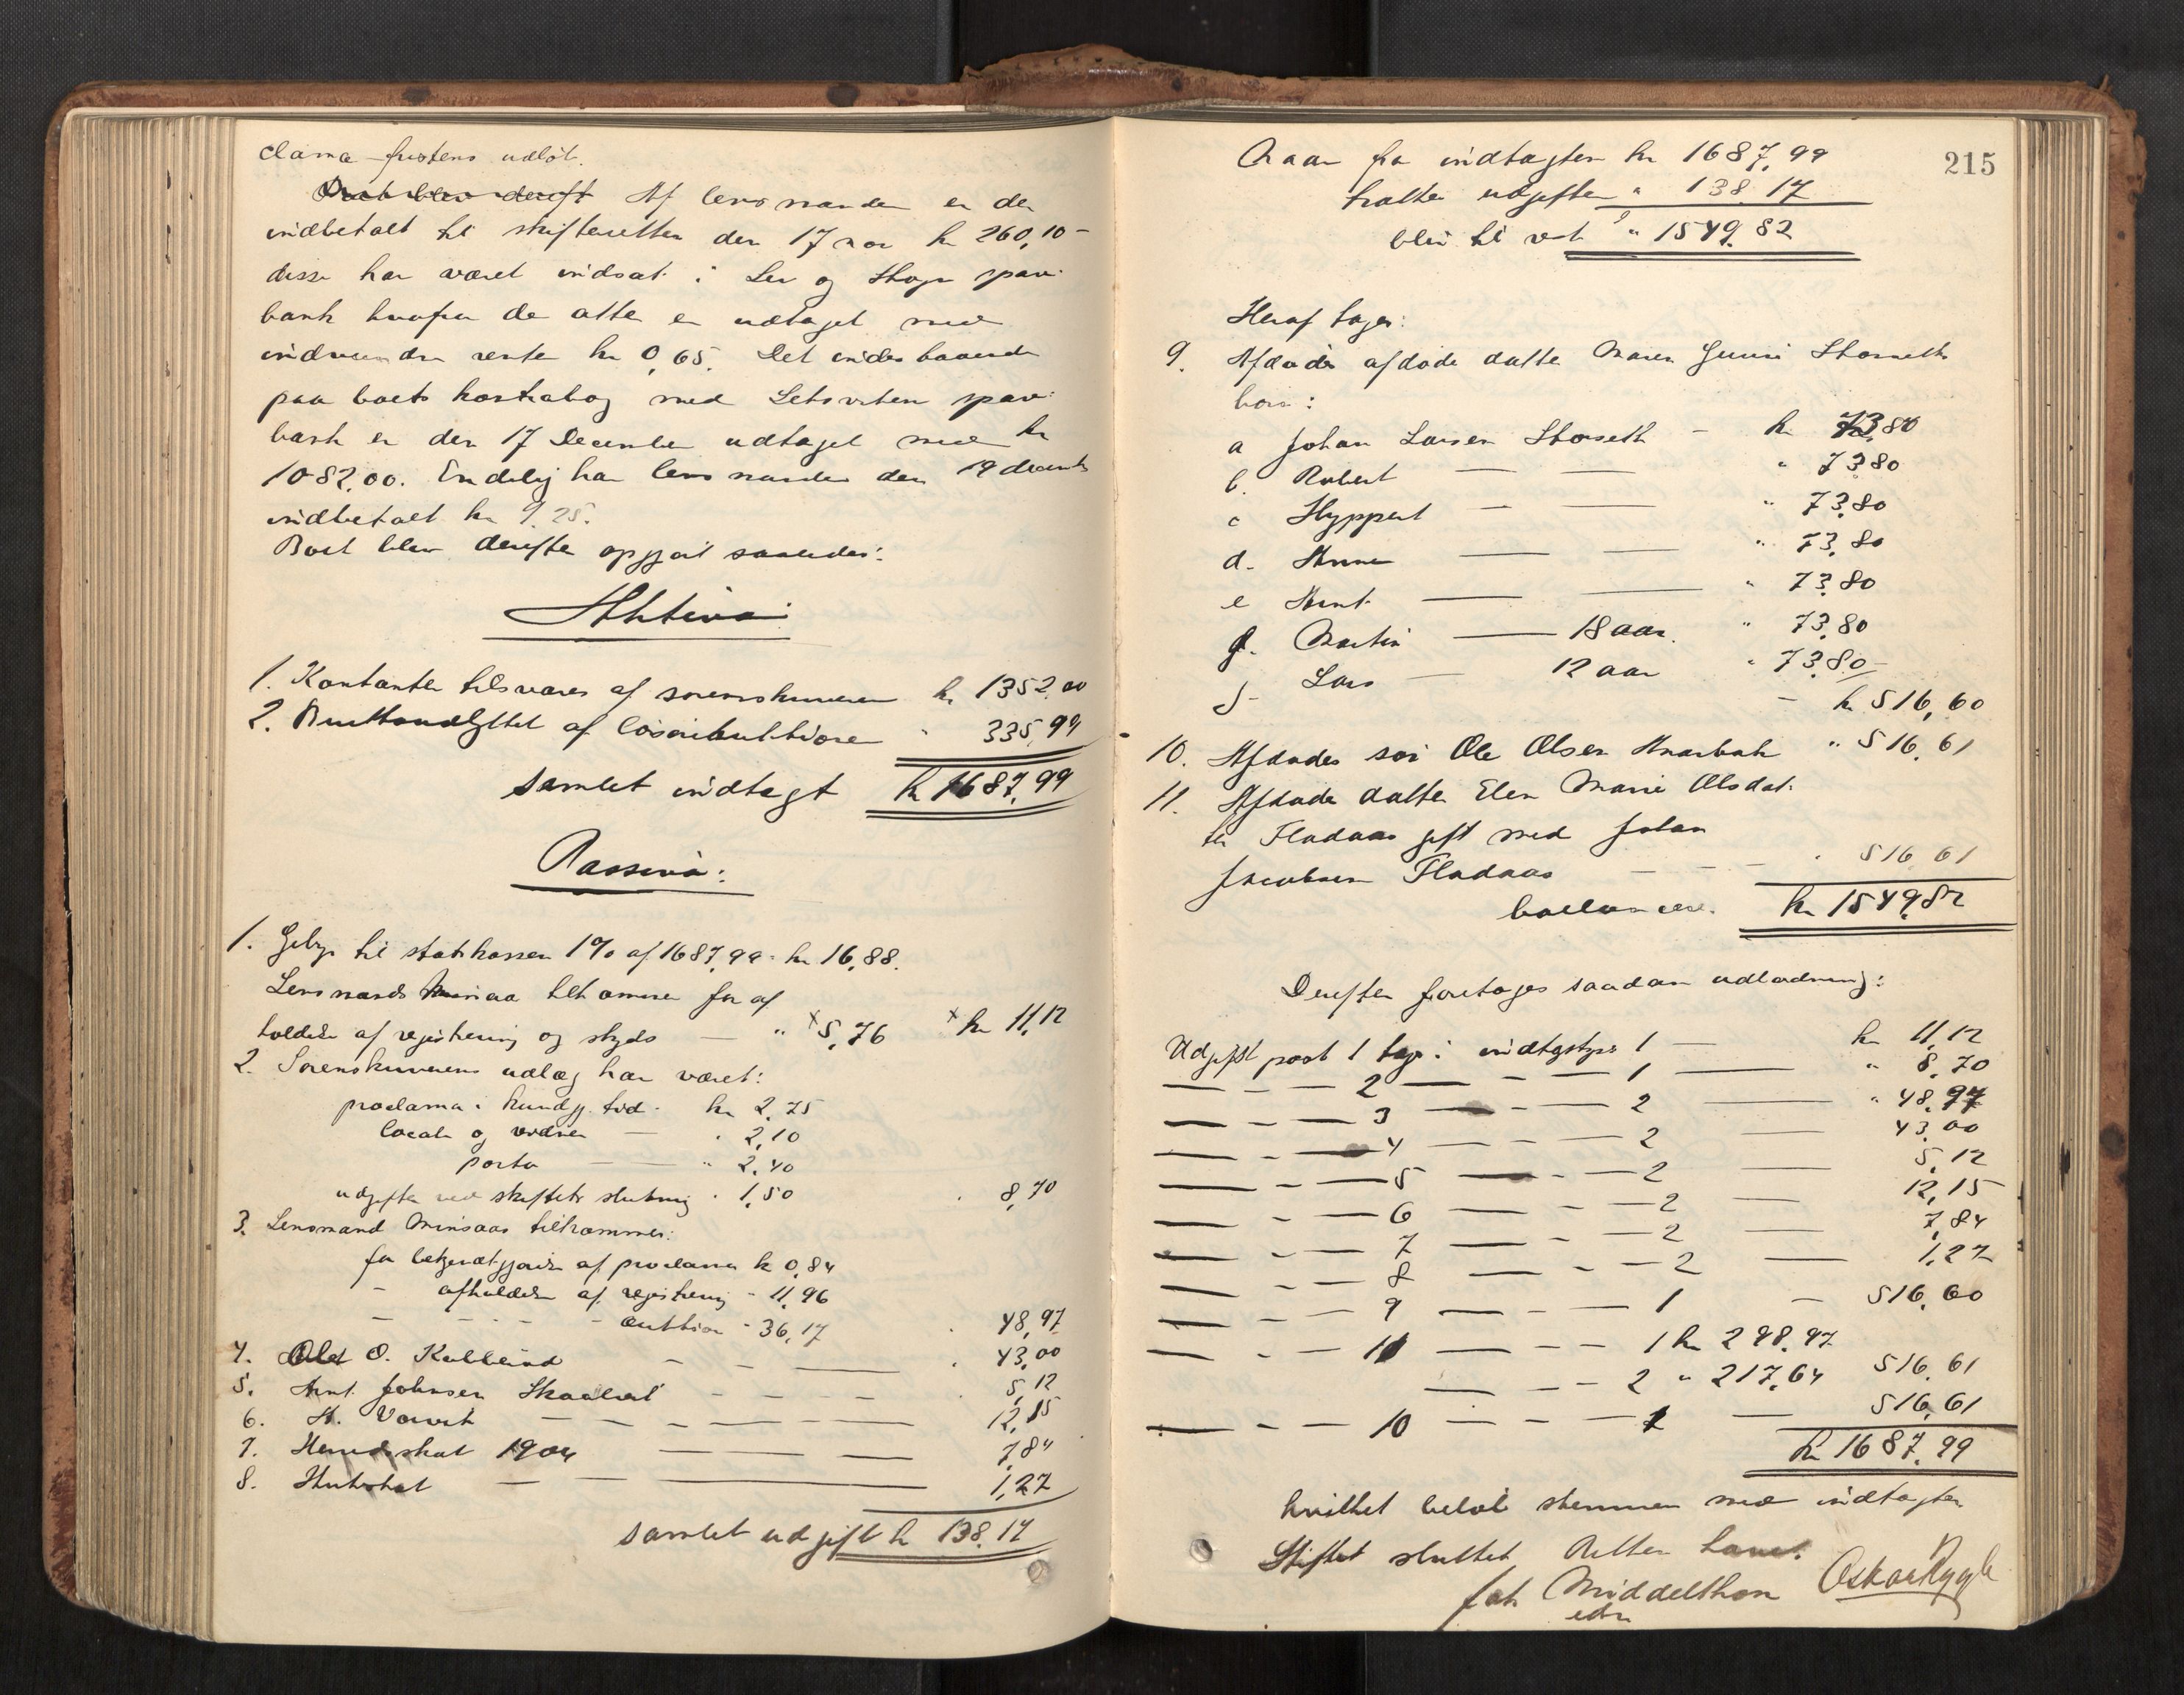 clama-fristens udløb.
Af lensmanden er der
indbetalt til skifteretten den 17 nov kr 260,10 -
disse har været indsat i og spare-
bank hvorfra de atter er udtaget med
indvundne rente kr 0,65. Det indestaaende
paa boets kontrabog med spare-
bank er den 17 December udtaget med kr
1082.00. Endelig har lensmanden den 19 decemb
indbetalt kr 9.25.
Boet blev derefter opgjort saaledes:
Aktiva:
1. Kontanter tilsvares af sorenskriveren kr 1352.00
2. Bruttoudbyttet af løsøreauktionen " 335,99
samlet indtægt kr 1687,99
Passiva:
1. Gebyr til statskassen 1% af 1687,99 - kr 16,88.
Lensmand tilkommer for af
holdelse af registrering og skyds — " x 5,76 x kr 11,12
2. Sorenskriverens udlæg har været:
proclama i kundgj. tid - kr 2,75
locale og vidner — " 2,10
porto — — " 2,40
udgifter ved skiftets slutning " 1,50 " 8,70
3. Lensmand Minsaas tilkommer:
for bekjendtgjørelse af proclama kr 0,84
- afholdelse af registrering - 11,96
- - - - - auktion - 36,17 " 48,97
4. O. Kalbeind - - — " 43,00
5. Arnt Johnsen - - - " 5,12
6. 12,15
7. Herredsskat 1904 — — 7,84
8. — — — 1,27
samlet udgift kr 138.17
215
Naar fra indtægten kr 1687,99
trækkes udgiften " 138.17
blir til rest " 1549,82
Heraf tager:
9. Afdødes afdøde datter Maren Guruie Storseths
børn:
a Johan Larsen Storseth - kr 73,80
b. Robert — — " 73,80
c Hyppert — — " 73,80
d. Anne — — " 73,80
e Arnt — — " 73,80
g. Martin — 18 aar. " 73,80
f Lars — 12 aar " 73,80 -
- kr 516,60
10. Afdødes søn Ole Olsen " 516,61
11. Afdødes datter Elen Marie Olsdat-
ter Fladaas gift med Johan
Jacobsen Fladaas — — - " 516 61
ballancerer. kr 1549,82
Derefter foretages saadan udlodning:
Udgiftspost 1 tager i indtægtspost 1 — kr 11,12
— - - 2 — - — 1 — " 8,70
— - - 3 — - — 2 — " 48,97
— - — 4 — - — 2 — 43,00
— - — 5 — - — 2 — 5,12
— - — 6 — - — 2 — 12,15
— - — 7 — - — 2 — 7,84
— - — 8 — - — 2 — 1,27
— - — 9 — - — 1 — 516,60
— - — 11 — - — 1 kr 298.97
— - - 2 " 217,64 516,61
— - — 10 — - — 1 — 516,61
kr 1687,99
hvilket beløb stemmer med indtægten
Skiftet sluttet. Retten hævet.
Joh Middelthon Oskar Rygh
edsv